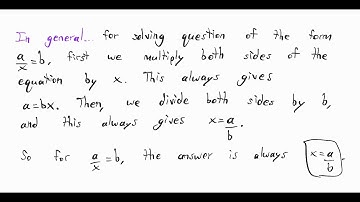 In general... for solving question of the form
a/x = b, first we multiply both sides of the
equation by x. This always gives
a = bx. Then, we divide both sides by b,
and this always gives x = a/b.
So for a/x = b, the answer is always x = a/b.